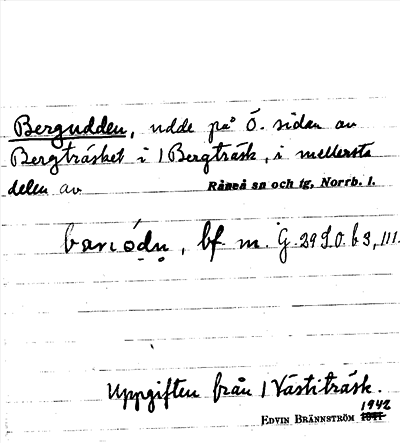 Bergudden, udde på Ö. sidan av
Bergträsket i 1 Bergträsk, i mellersta
delen av Råneå sn och tg, Norrb. l.
bf. m. G. 29 S.O. b 3, III.
Uppgiften från 1 Västiträsk.
EDVIN BRÄNNSTRÖM 1942